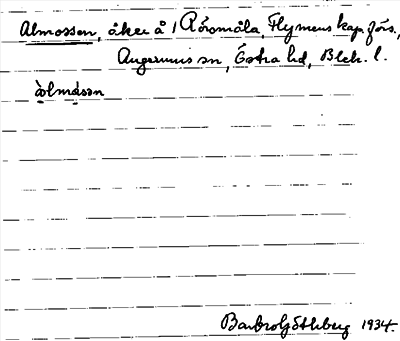 Almossen, åker å 1 Rörsmåla, Flymens kap.förs.,
Augerums sn, Östra hd, Blek. l.
àlmȧsən
Barbro Göthberg 1934.